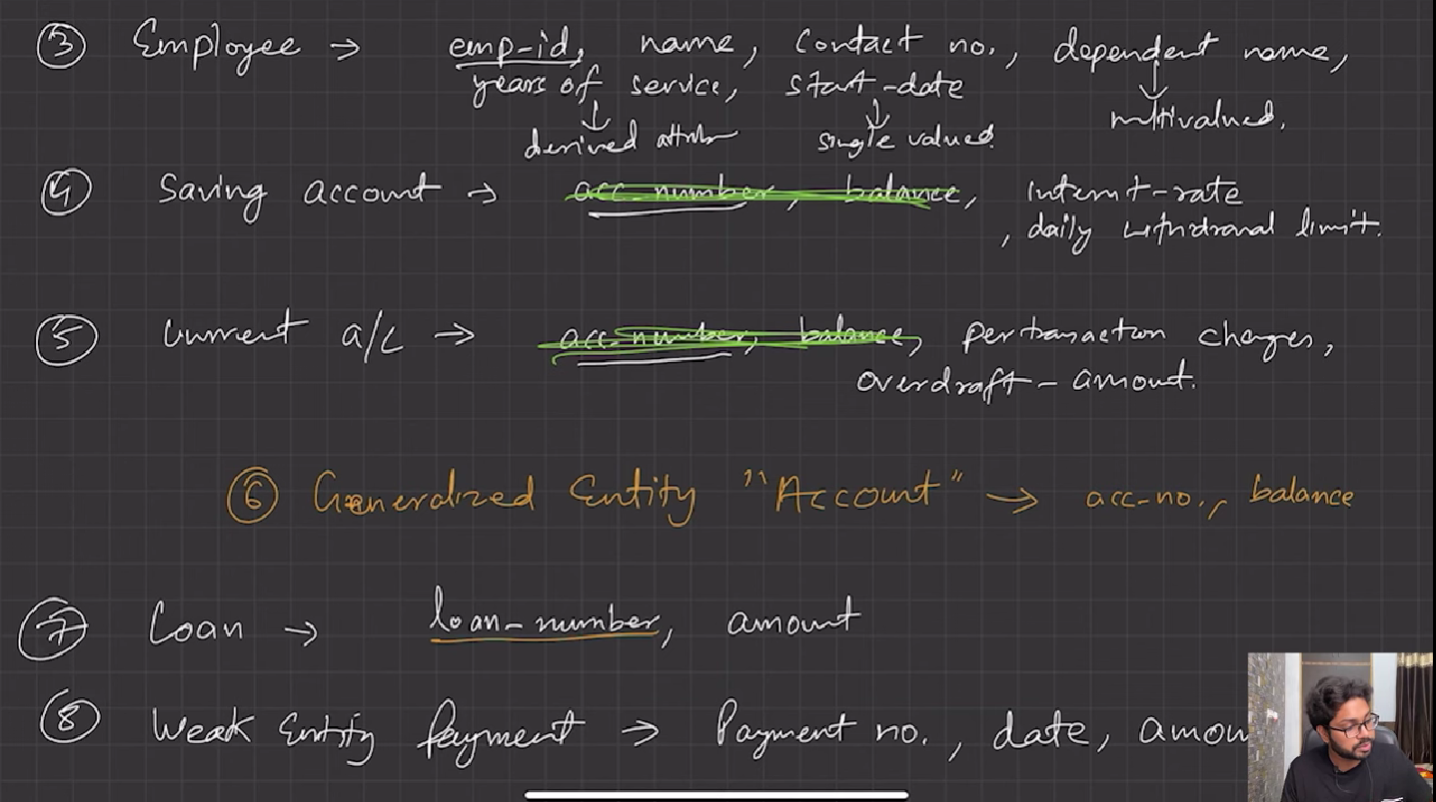 ③ Employee → emp-id, name, contact no., dependent name,
years of service, start-date
multivalued.
derived attrib single valued.
④ Saving account → acc-number, balance, interest-rate
, daily withdrawal limit.
⑤ Current a/c → acc-number, balance, per transaction charges,
overdraft-amount.
⑥ Generalized Entity "Account" → acc-no., balance
⑦ Loan → loan-number, amount
⑧ Weak Entity Payment → Payment no., date, amoun